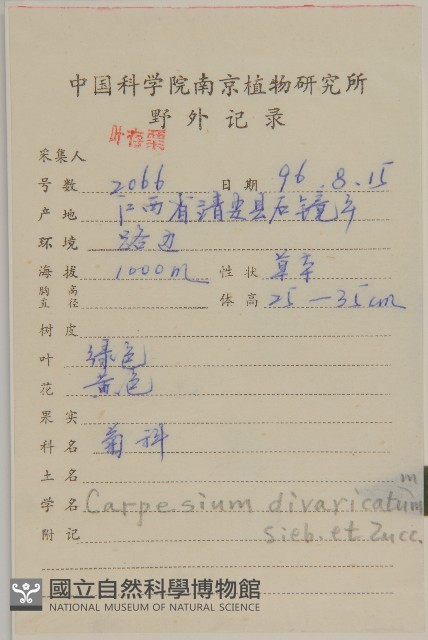 中国科学院南京植物研究所
野外记录
叶存粟
采集人
号数 2066 日期 96.8.15
产地 江西省靖安县石镜寺
环境 路边
海拔 1000m 性状 草本
胸高直径 体高 25—35cm
树皮
叶 绿色
花 黄色
果实
科名 菊科
土名
学名 Carpesium divaricatum
附记 Sieb. et Zucc.
國立自然科學博物館
NATIONAL MUSEUM OF NATURAL SCIENCE